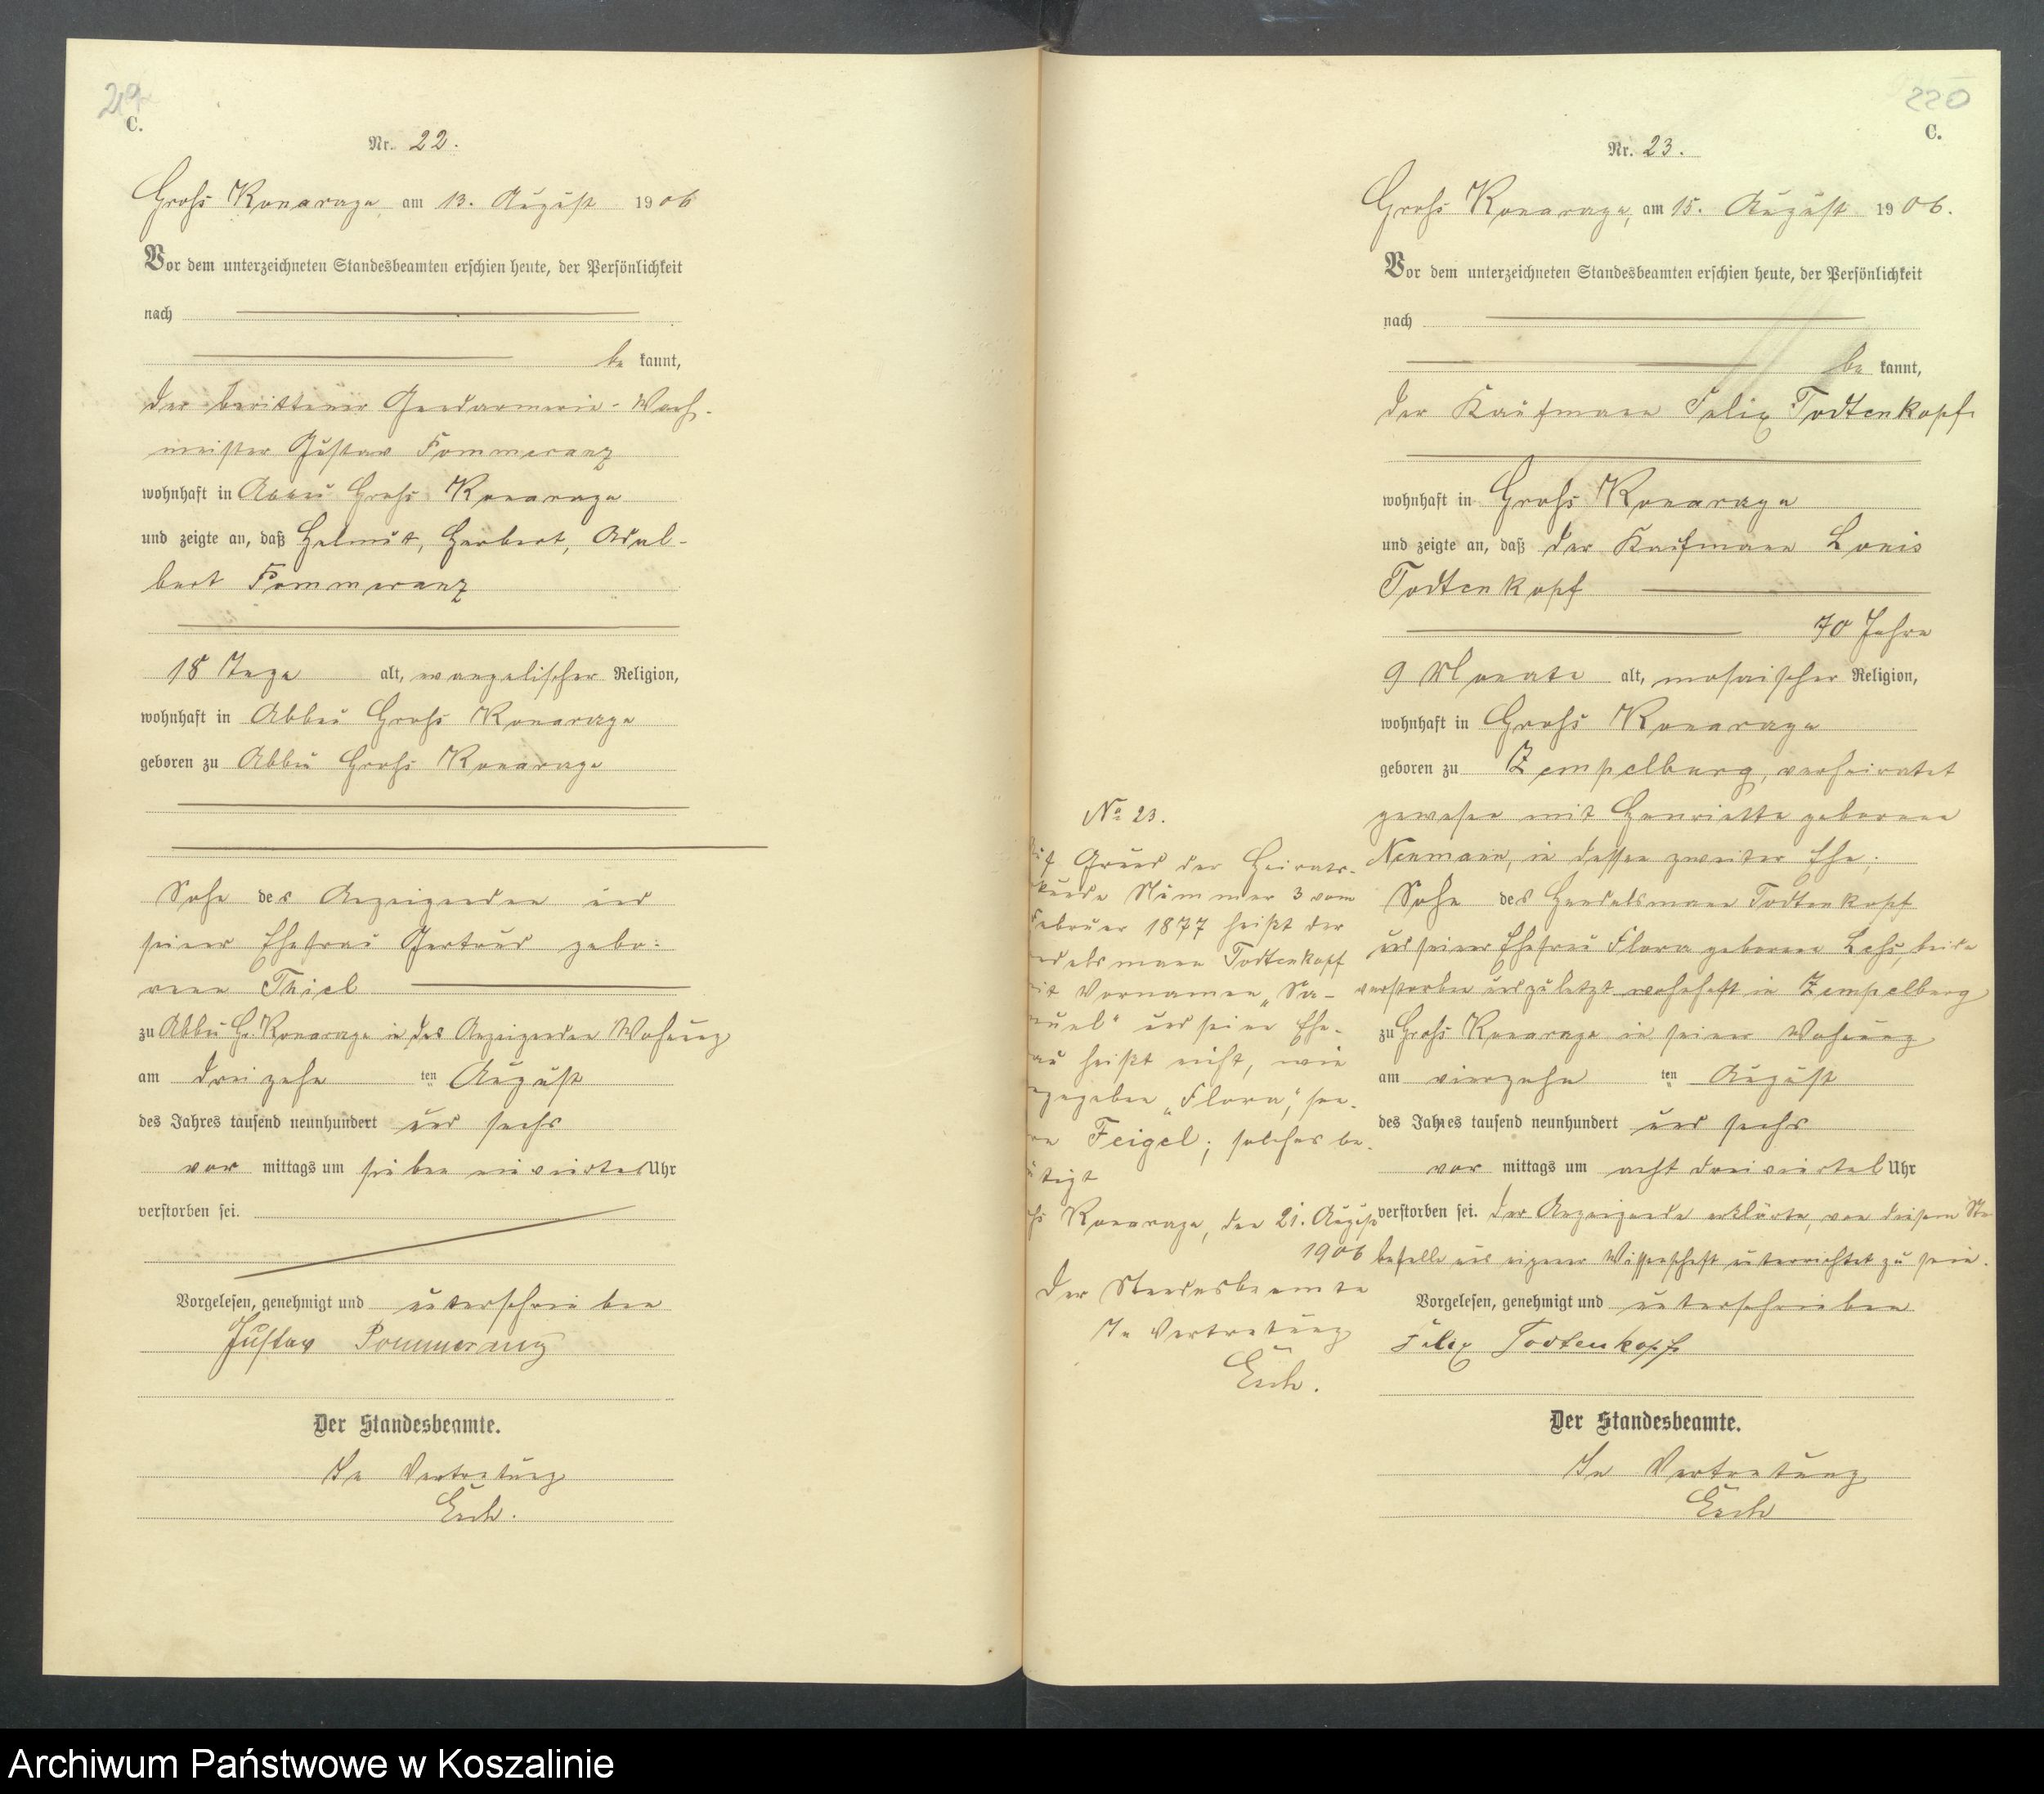 219
C.
Nr. 22.
Groß Konarzyn am 13. August 1906
Vor dem unterzeichneten Standesbeamten erschien heute, der Persönlichkeit
nach
be kannt,
der berittener Gendarmerie-Wach-
meister Gustav Pommeranz
wohnhaft in Abbau Groß Konarzyn
und zeigte an, daß Helmutt, Herbert, Adal-
bert Pommeranz
18 Tage alt, evangelischer Religion,
wohnhaft in Abbau Groß Konarzyn
geboren zu Abbau Groß Konarzyn
Sohn des Anzeigenden und
seiner Ehefrau Gertrud gebo-
renen Thiel
zu Abbau Gr. Konarzyn in des Anzeigenden Wohnung
am dreizehn ten August
des Jahres tausend neunhundert und sechs
vor mittags um sieben einviertel Uhr
verstorben sei.
Vorgelesen, genehmigt und unterschrieben
Gustav Pommeranz
Der Standesbeamte.
In Vertretung
220
C.
Nr. 23.
Groß Konarzyn, am 15. August 1906.
Vor dem unterzeichneten Standesbeamten erschien heute, der Persönlichkeit
nach
be kannt,
der Kaufmann Felix Todtenkopf
wohnhaft in Groß Konarzyn
und zeigte an, daß der Kaufmann Louis
Todtenkopf
70 Jahre
9 Monate alt, mosaischer Religion,
wohnhaft in Groß Konarzyn
geboren zu Zempelburg, verheiratet
gewesen mit Henriette geborenen
Neumann, in dessen zweiter Ehe,
Sohn des Handelsmann Todtenkopf
und seiner Ehefrau Flora geborenen beide
verstorben und zuletzt wohnhaft in Zempelburg
zu Groß Konarzyn in seiner Wohnung
am vierzehn ten August
des Jahres tausend neunhundert und sechs
vor mittags um acht dreiviertel Uhr
verstorben sei. Der Anzeigende erklärte, von diesem Ste-
befalle aus eigener Wissenschaft unterrichtet zu sein.
Vorgelesen, genehmigt und unterschrieben
Felix Todtenkopf
Der Standesbeamte.
In Vertretung
No 23.
uf Grund der Heirats-
kunde Nummer 3 vom
Februar 1877 heißt der
ndelsmann Todtenkopf
it Vornamen "Sa-
muel" und seine Ehe-
au heißt nicht, wie
ngegeben "Flora", son-
rn Feigel; solches be-
tigt
Konarzyn, den 21. August
1906
Der Standesbeamte
In Vertretung
Archiwum Państwowe w Koszalinie